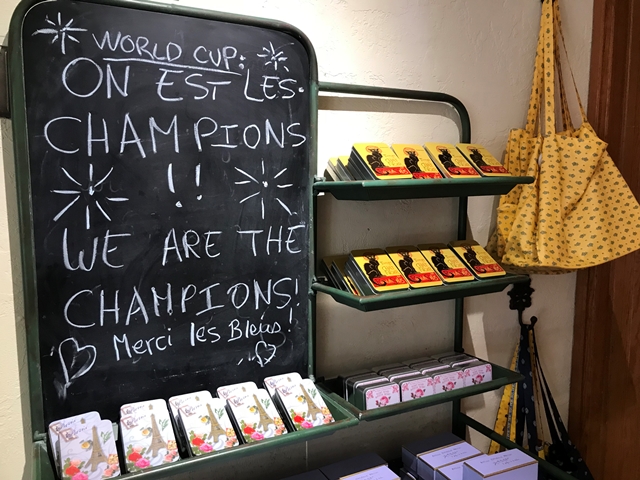 WORLD CUP:
ON EST LES
CHAMPIONS
!!
WE ARE THE
CHAMPIONS!
Merci les Bleus!